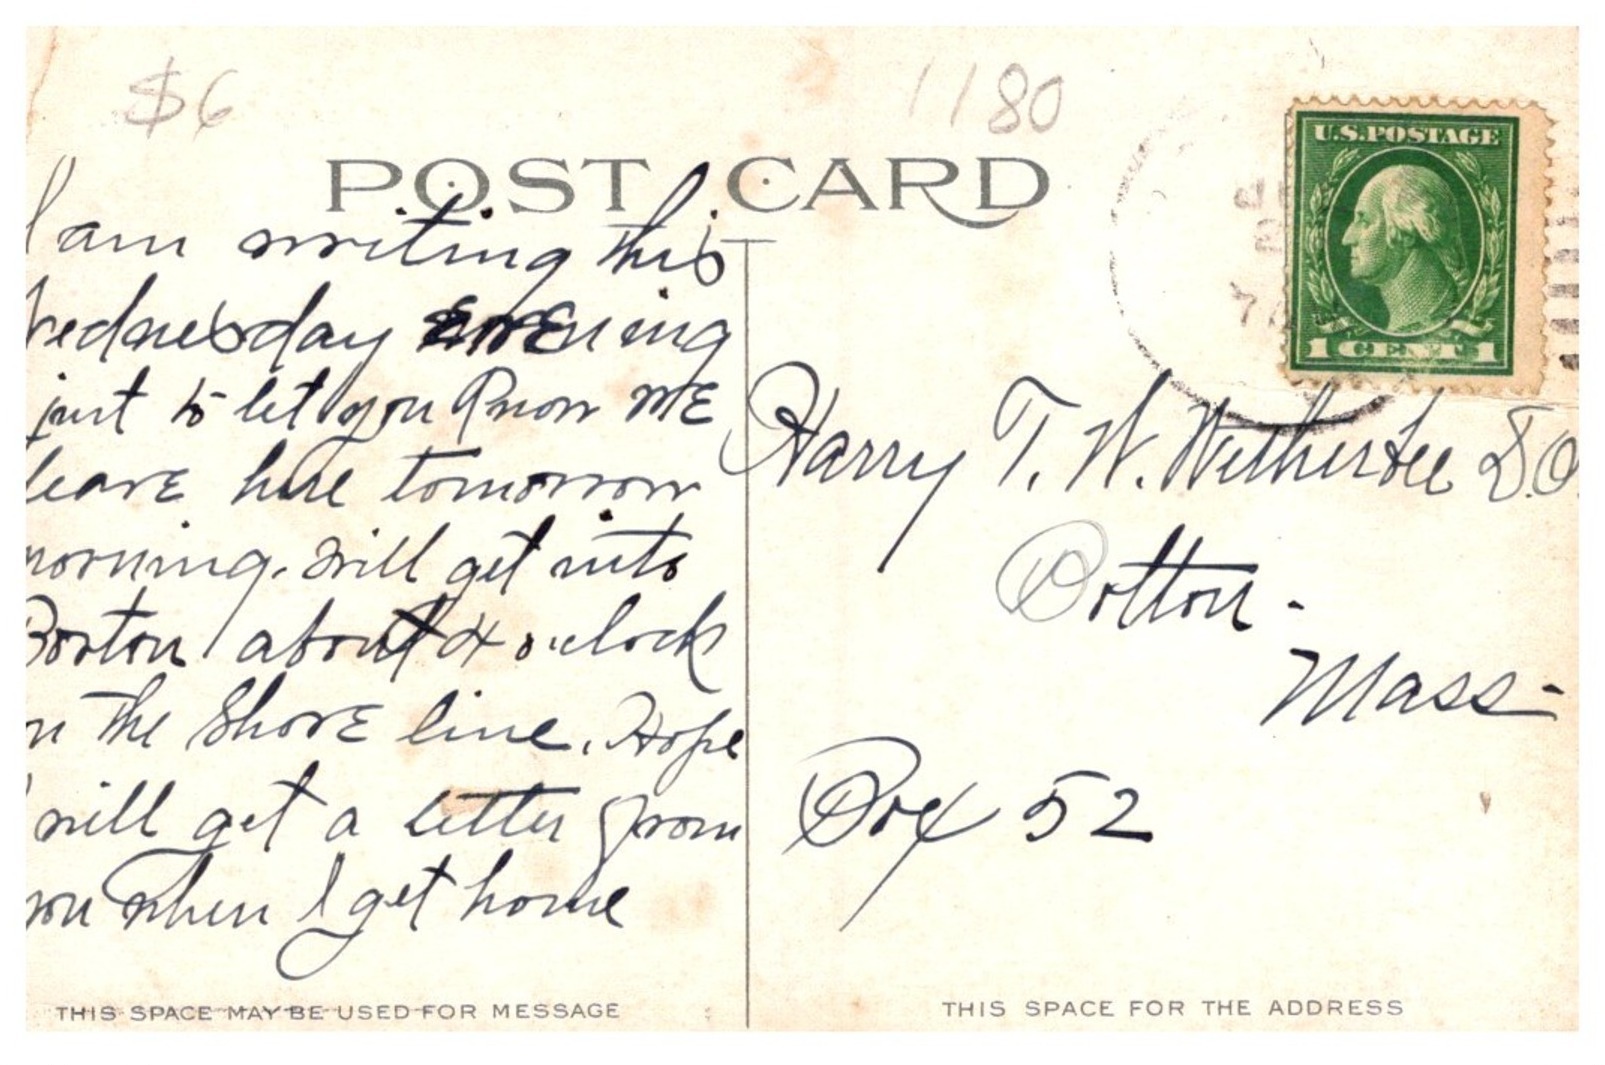 $6
1180
POST CARD
U.S. POSTAGE
1 CENT 1
I am writing this
Wednesday evening
just to let you know we
leave here tomorrow
morning. will get into
Boston about 4 o'clock
on the Shore line. Hope
I will get a letter from
you when I get home
Harry T. W. Wetherbee D.O.
Bolton.
Mass-
Box 52
THIS SPACE MAY BE USED FOR MESSAGE
THIS SPACE FOR THE ADDRESS